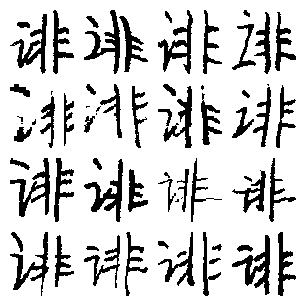 诽诽诽诽
诽诽诽诽
诽诽诽诽
诽诽诽诽